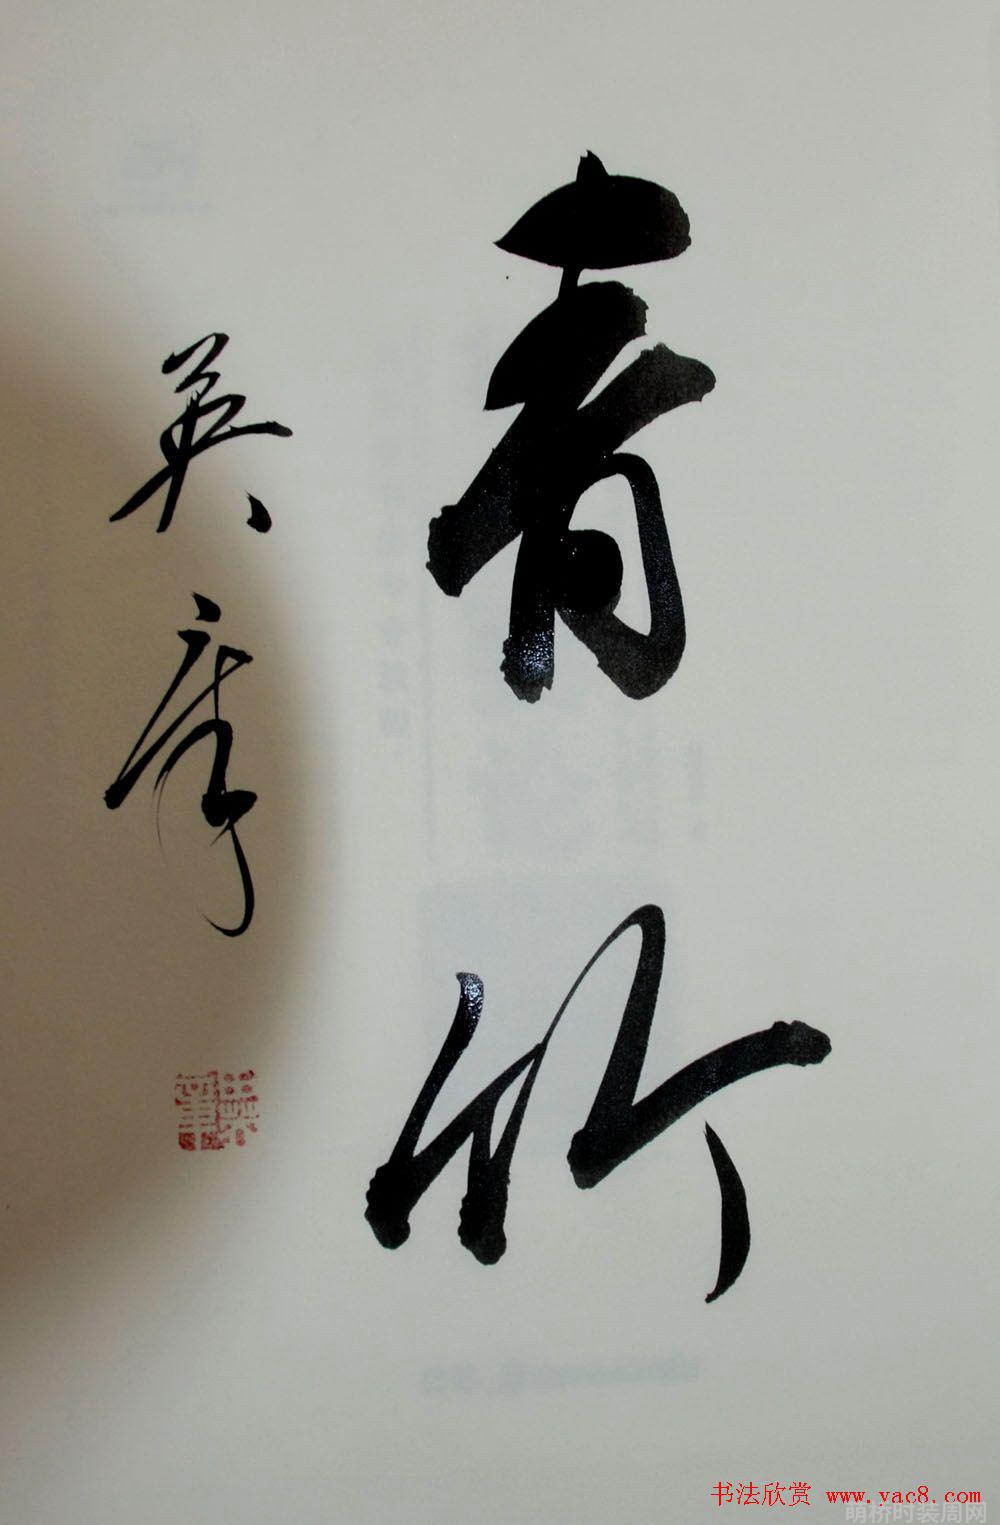 青竹
英
书法欣赏 www.yac8.com
萌桥时装周网